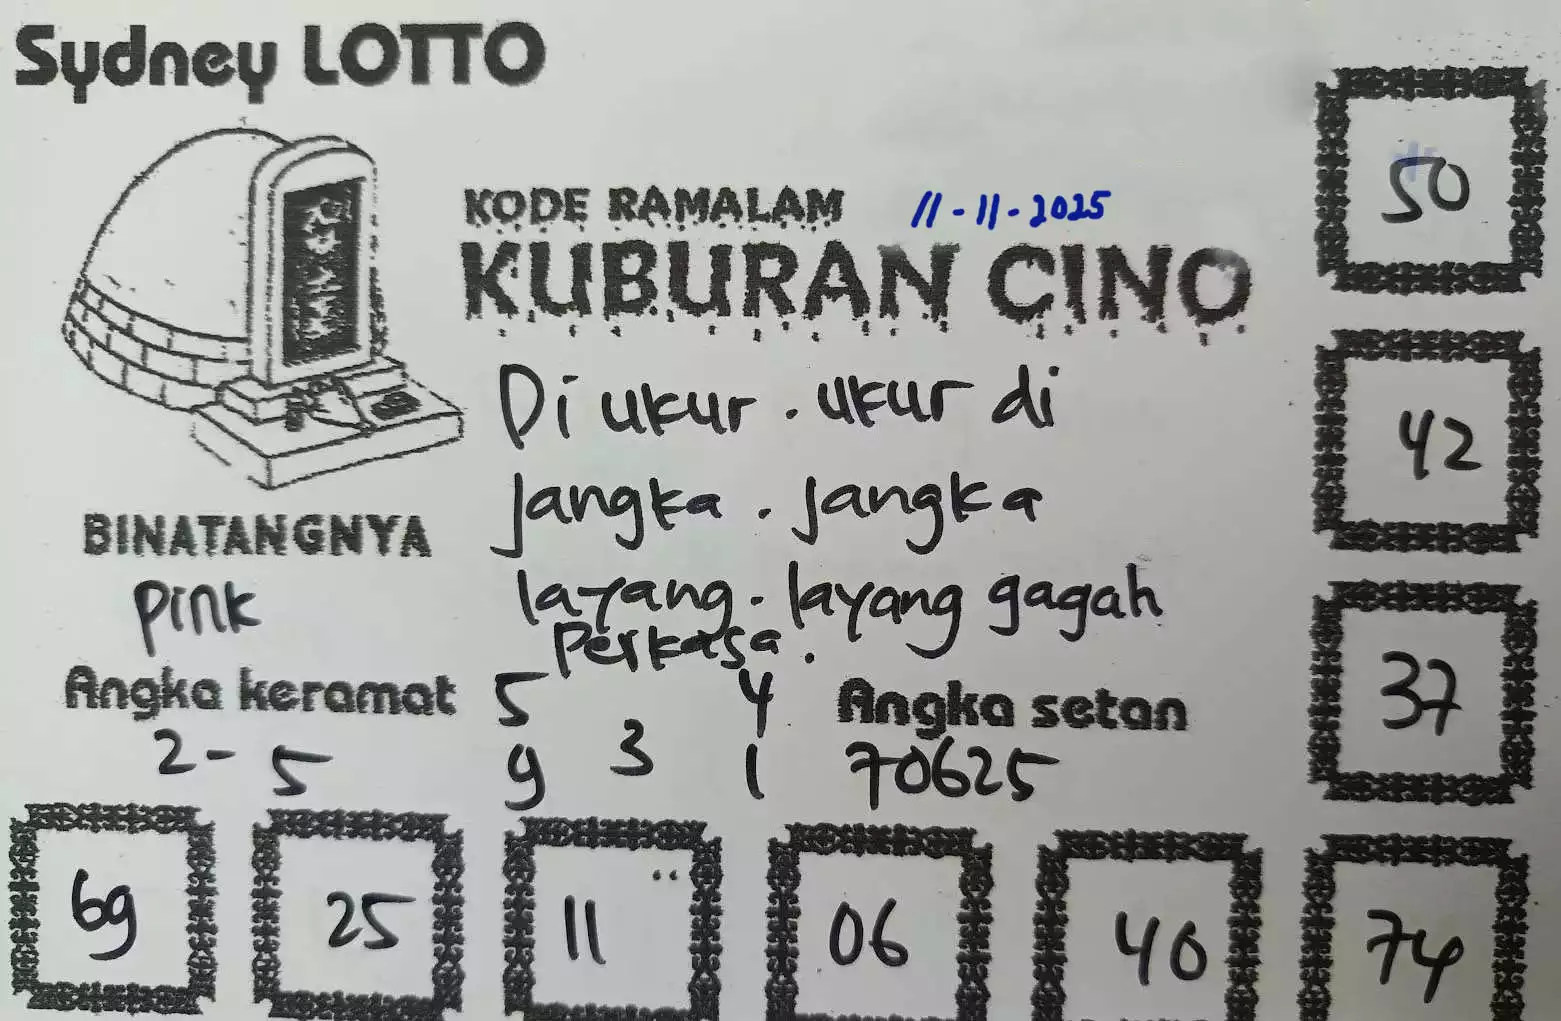 Sydney LOTTO
50
KODE RAMALAM 11-11-2025
KUBURAN CINO
Di ukur. ukur di
42
jangka. jangka
BINATANGNYA
Pink
layang. layang gagah
Perkasa.
37
Angka keramat
2-5
5 4
3
9 1
Angka setan
70625
69 25 11 06 40 74